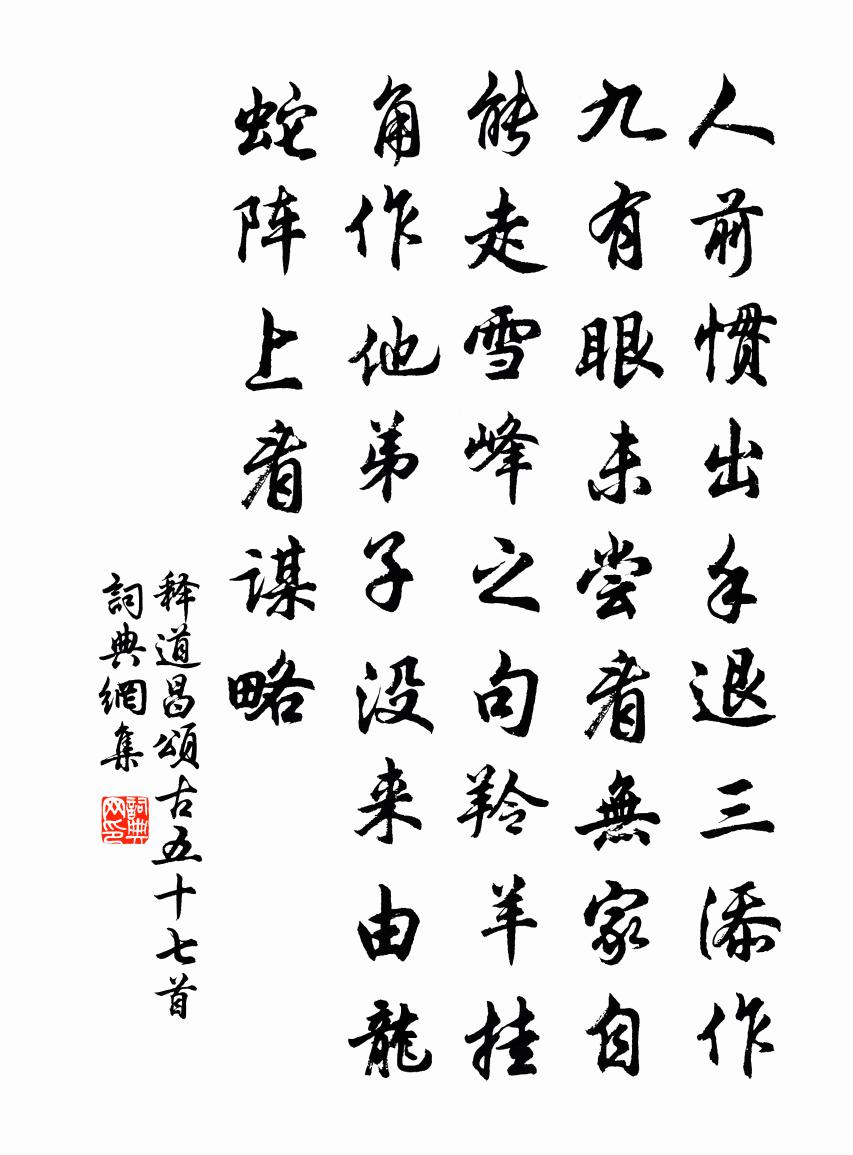 人前惯出手退三添作
九有眼未尝看無家自
能走雪峰之句羚羊挂
角作他弟子没来由龍
蛇阵上看谋略
释道昌颂古五十七首
詞典網集
詞典网印